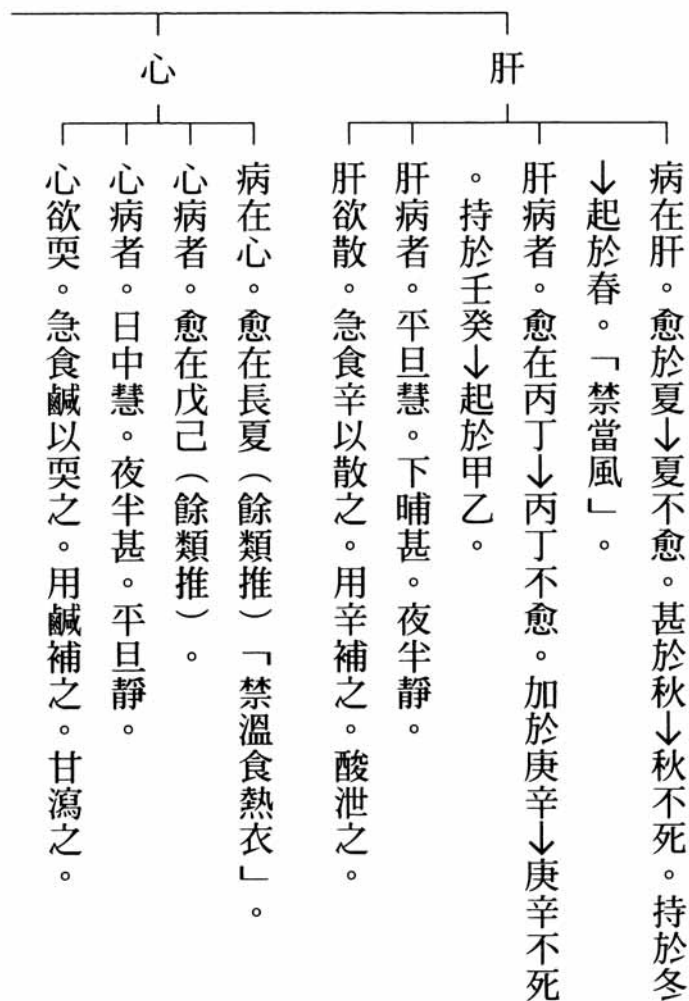 肝
病在肝。愈於夏↓夏不愈。甚於秋↓秋不死。持於冬
↓起於春。「禁當風」。
肝病者。愈在丙丁↓丙丁不愈。加於庚辛↓庚辛不死
。持於壬癸↓起於甲乙。
肝病者。平旦慧。下晡甚。夜半靜。
肝欲散。急食辛以散之。用辛補之。酸泄之。
心
病在心。愈在長夏(餘類推)「禁溫食熱衣」。
心病者。愈在戊己(餘類推)。
心病者。日中慧。夜半甚。平旦靜。
心欲耎。急食鹹以耎之。用鹹補之。甘瀉之。